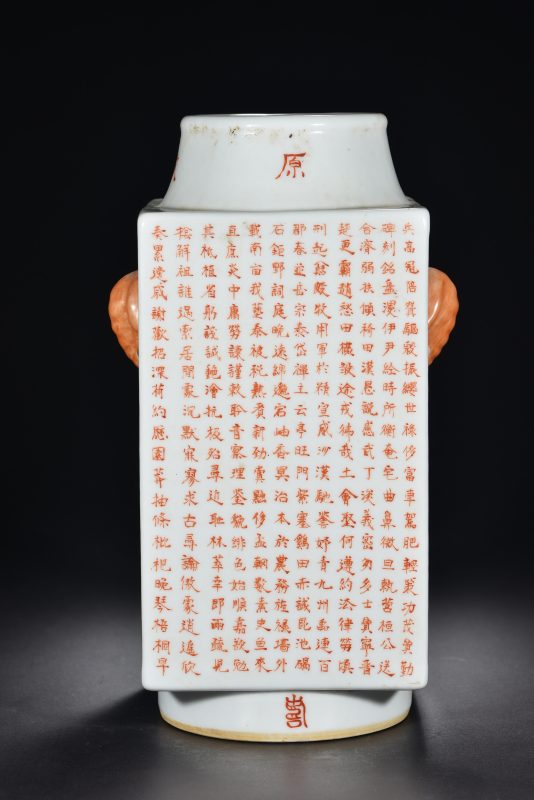 原
兵高冠陪輦驅轂振纓世祿侈富車駕肥輕策功茂實勤
碑刻銘磻溪伊尹佐時阿衡奄宅曲阜微旦孰營桓公匡
合濟弱扶傾綺回漢惠說感武丁俊義密勿多士實寧晉
楚更霸趙魏困橫假途滅虢踐土會盟何遵約法韓弊煩
刑起翦頗牧用軍最精宣威沙漠馳譽丹青九州禹跡百
郡秦並嶽宗泰岱禪主云亭雁門紫塞雞田赤城昆池碣
石鉅野洞庭曠遠綿邈岩岫杳冥治本於農務茲稼穡俶
載南畝我藝黍稷稅熟貢新勸賞黜陟孟軻敦素史魚秉
直庶幾中庸勞謙謹敕聆音察理鑒貌辨色貽厥嘉猷勉
其祗植省躬譏誡寵增抗極殆辱近恥林皋幸即兩疏見
機解組誰逼索居閑處沉默寂寥求古尋論散慮逍遙欣
奏累遣慼謝歡招渠荷的歷園莽抽條枇杷晚翠梧桐早